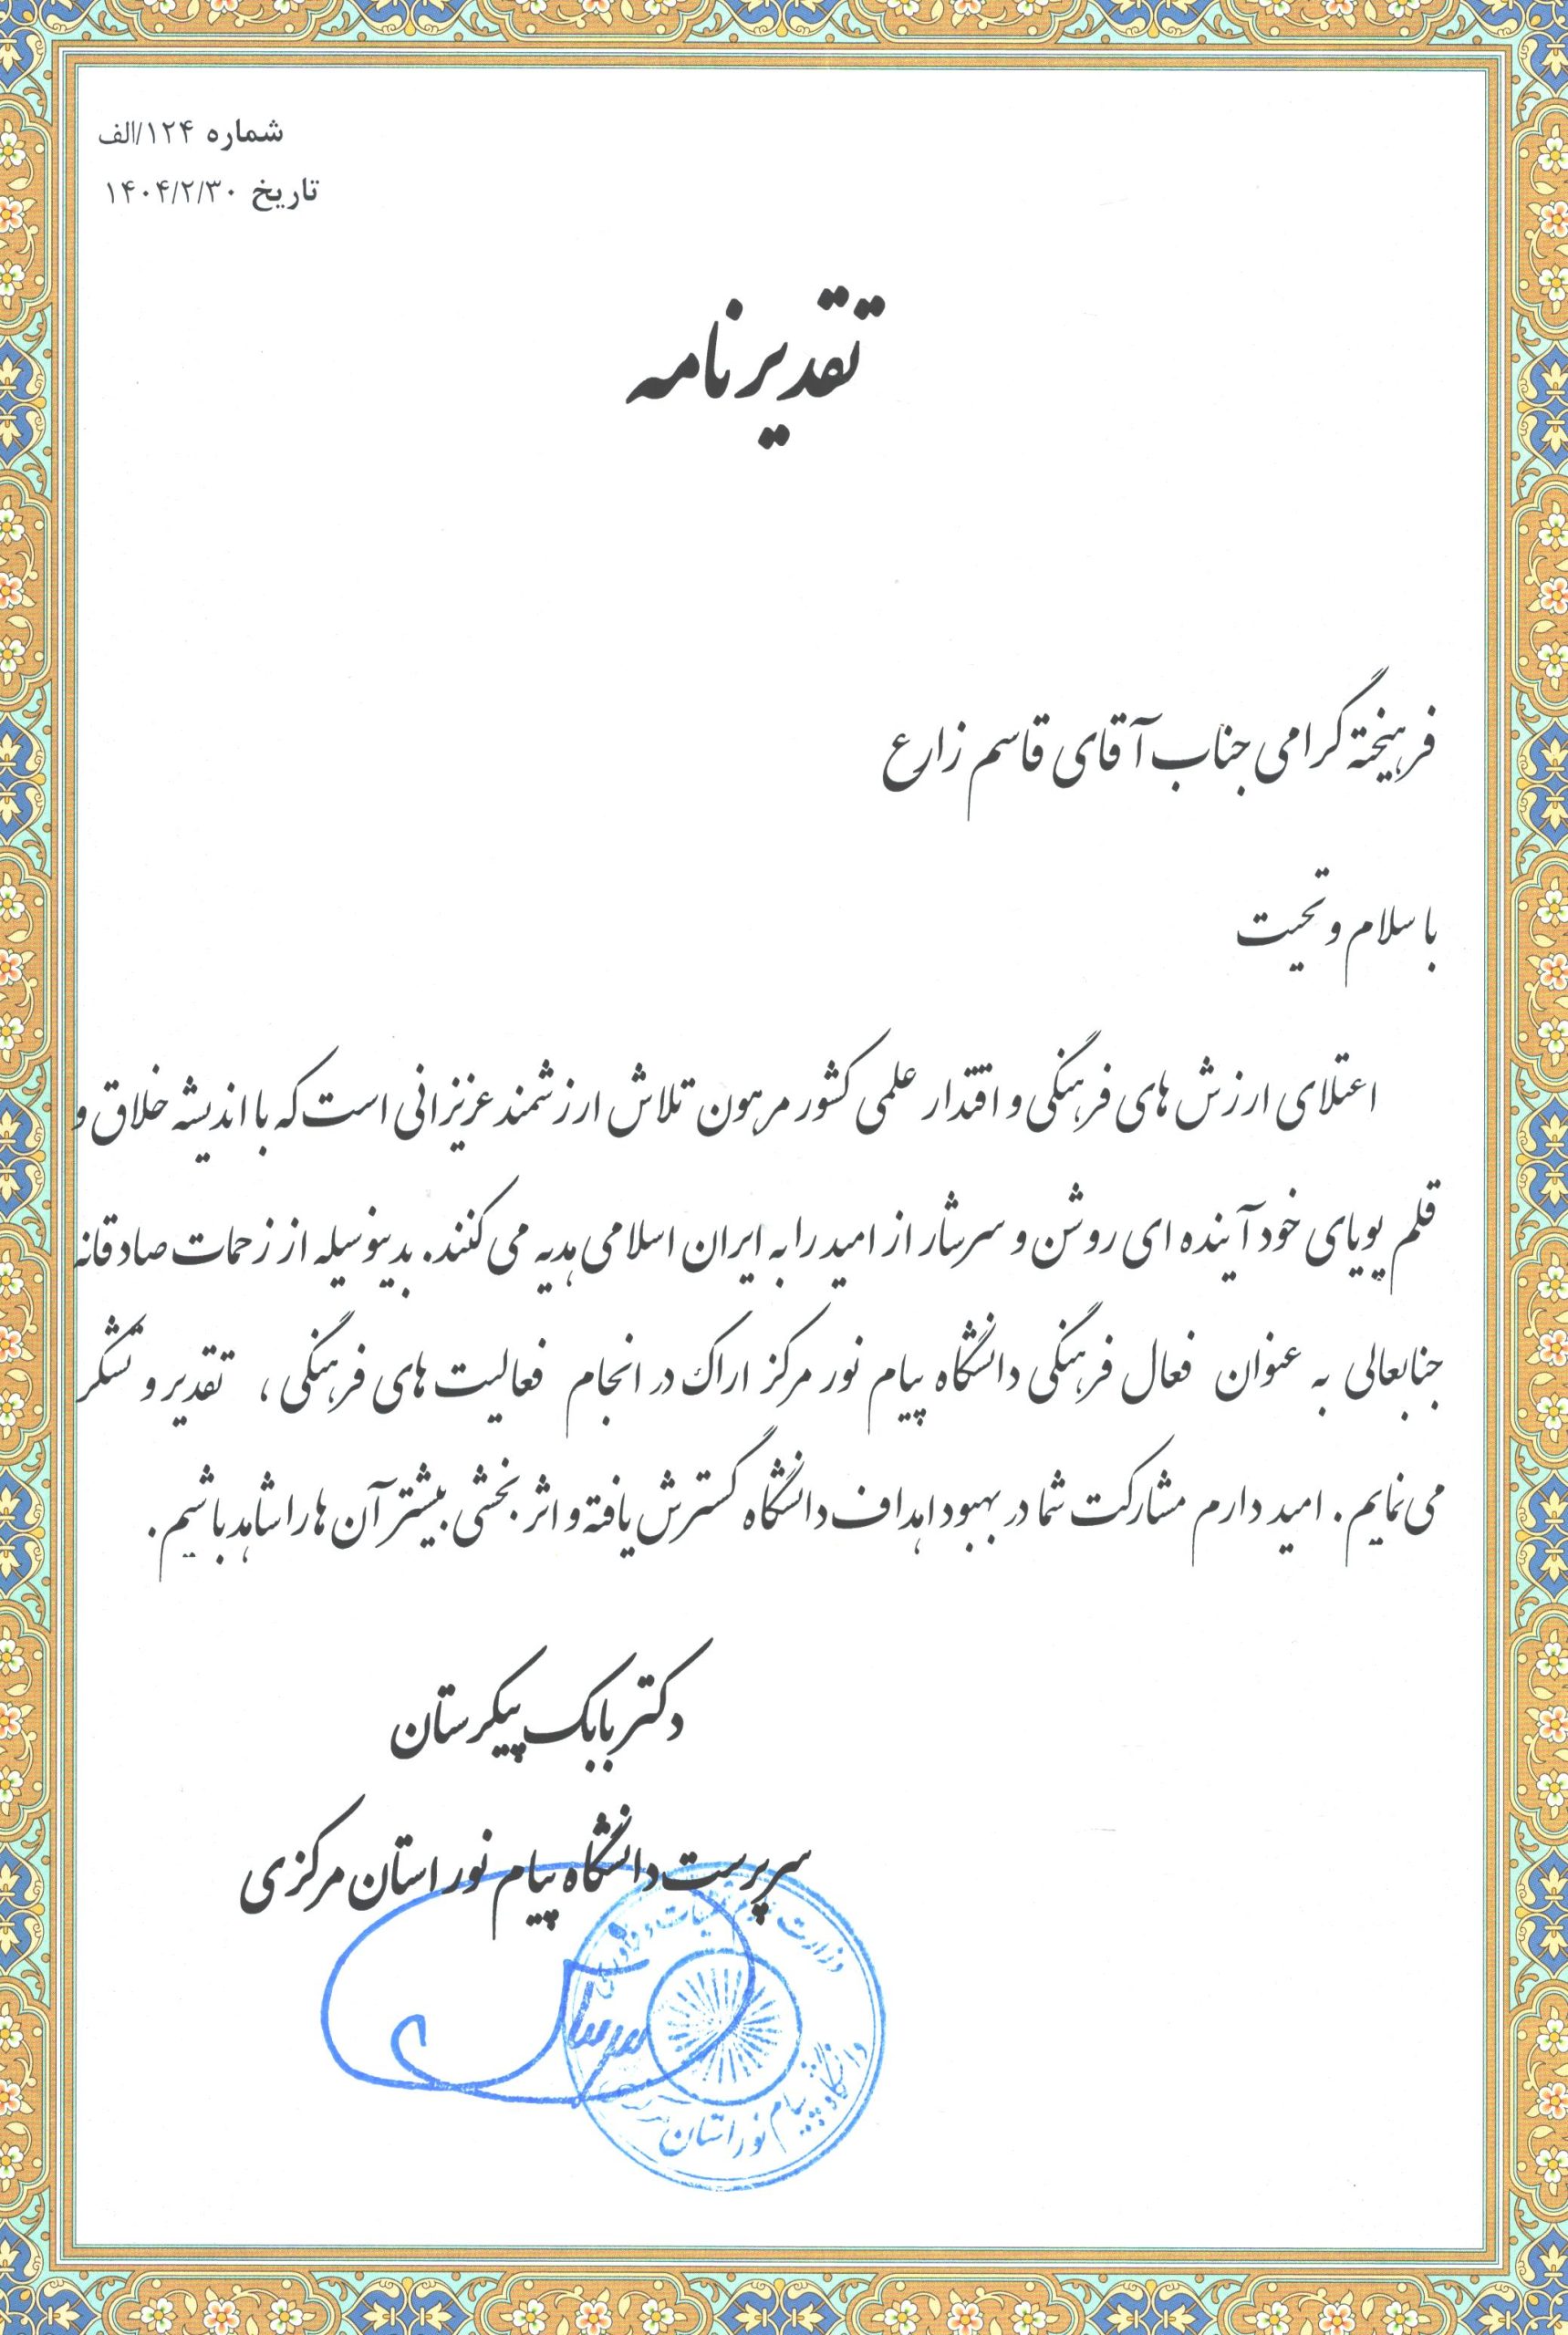 شماره ۱۲۴/الف
تاریخ ۱۴۰۴/۲/۳۰
تقدیرنامه
فرهیختۀ گرامی جناب آقای قاسم زارع
با سلام و تحیت
اعتلای ارزش های فرهنگی و اقتدار علمی کشور مرهون تلاش ارزشمند عزیزانی است که با اندیشه خلاق و
قلم پویای خود آینده ای روشن و سرشار از امید را به ایران اسلامی هدیه می کنند. بدینوسیله از زحمات صادقانه
جنابعالی به عنوان فعال فرهنگی دانشگاه پیام نور مرکز اراک در انجام فعالیت های فرهنگی، تقدیر و تشکر
می نمایم. امید دارم مشارکت شما در بهبود اهداف دانشگاه گسترش یافته و اثر بخشی بیشتر آن ها را شاهد باشیم.
دکتر بابک پیکرستان
سرپرست دانشگاه پیام نور استان مرکزی
وزارت
دانشگاه پیام نور استان